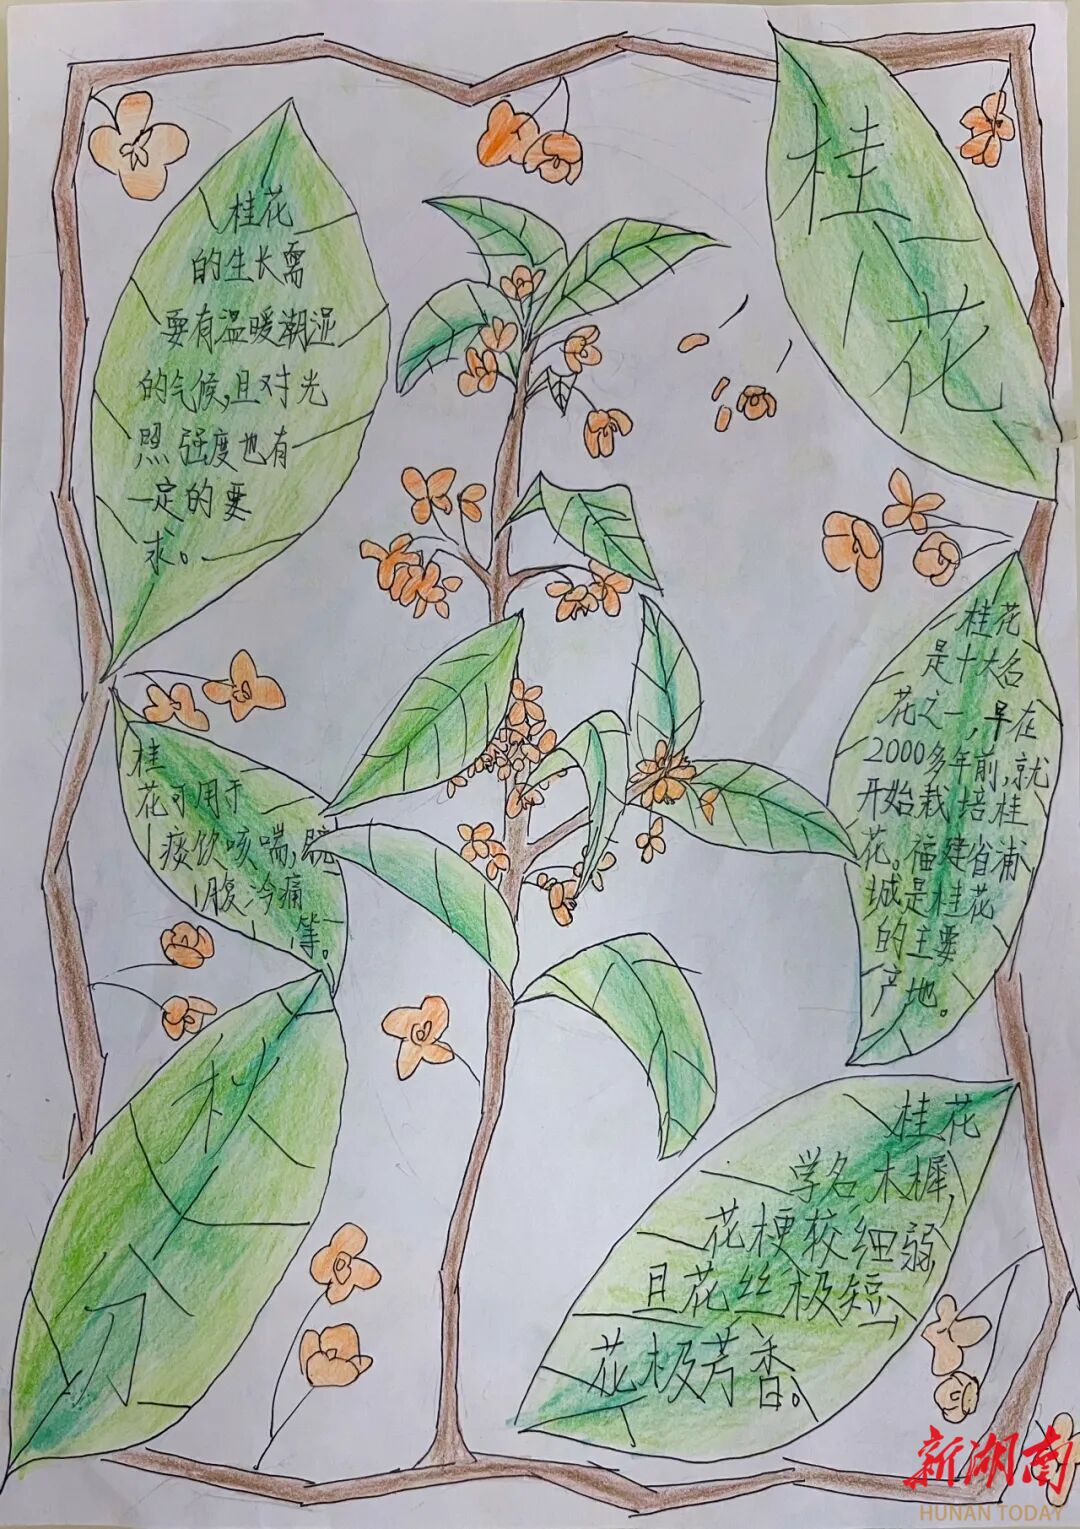 桂花
桂花
的生长需
要有温暖潮湿
的气候,且对光
照强度也有
一定的要
求。
桂花
是十大名
花之一,早在
2000多年前,就
开始栽培桂
花。福建省浦
城是桂花
的主要
产地。
桂
花可用于
痰饮咳喘,脘
腹冷痛
等。
秋
分
桂花
学名木樨,
花梗较细弱,
且花丝极短,
花极芳香。
新湖南
HUNAN TODAY